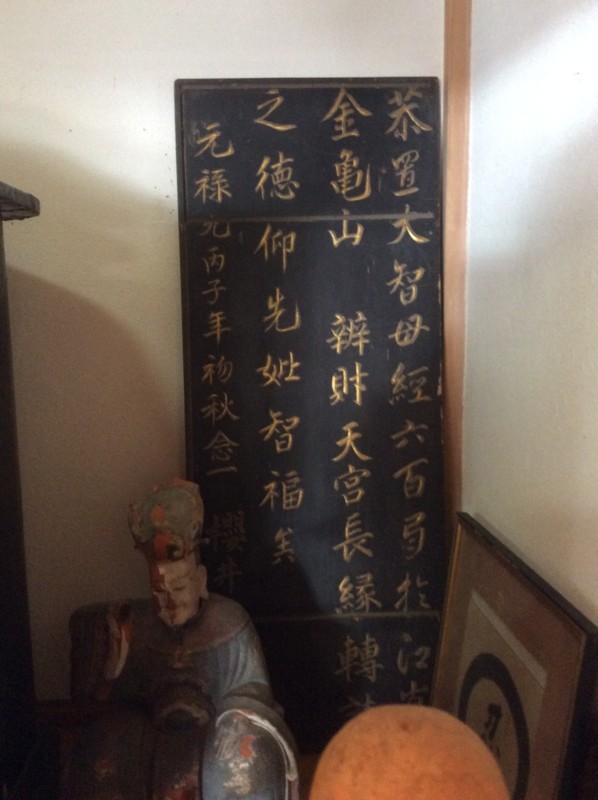 恭置大智母經六百局於江
金亀山 辨財天宮長縁轉
之德仰先妣智福
元禄九丙子年初秋念一 櫻井